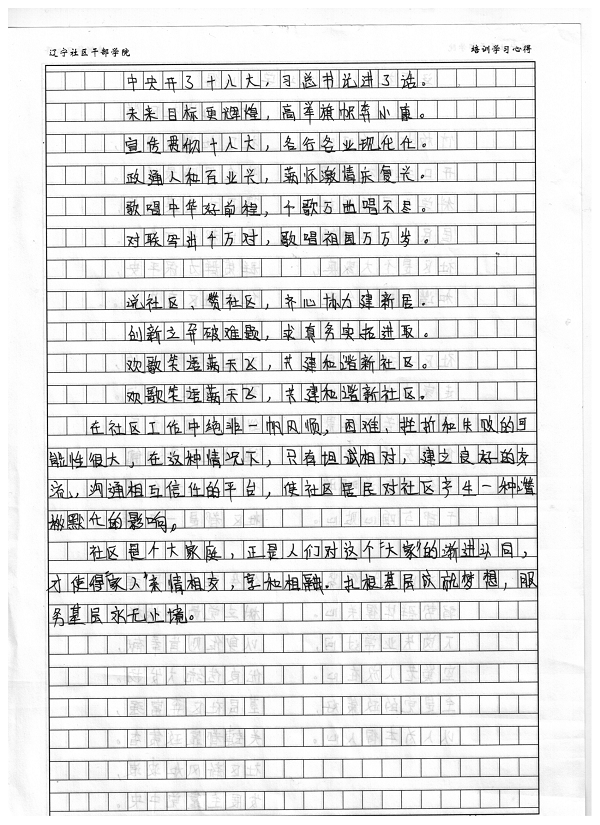 辽宁社区干部学院 培训学习心得
中央开了十八大，习总书记进了话。
未来目标更辉煌，高举旗帜奔小康。
宣传贯彻十八大，各行各业现代化。
政通人和百业兴，满怀激情乐复兴。
歌唱中华好前程，千歌万曲唱不尽。
对联写出千万对，歌唱祖国万万岁。
说社区、赞社区，齐心协力建新居。
创新立异破难题，求真务实拓进取。
欢歌笑语满天飞，共建和谐新社区。
欢歌笑语满天飞，共建和谐新社区。
在社区工作中绝非一帆风顺，困难、挫折和失败的可
能性很大，在这种情况下，只有坦诚相对，建立良好的交
流、沟通相互信任的平台，使社区居民对社区产生一种潜
移默化的影响。
社区是个大家庭，正是人们对这个“大家”的渐进认同，
才使得“家人”亲情相交，享和相融。扎根基层成就梦想，服
务基层永无止境。